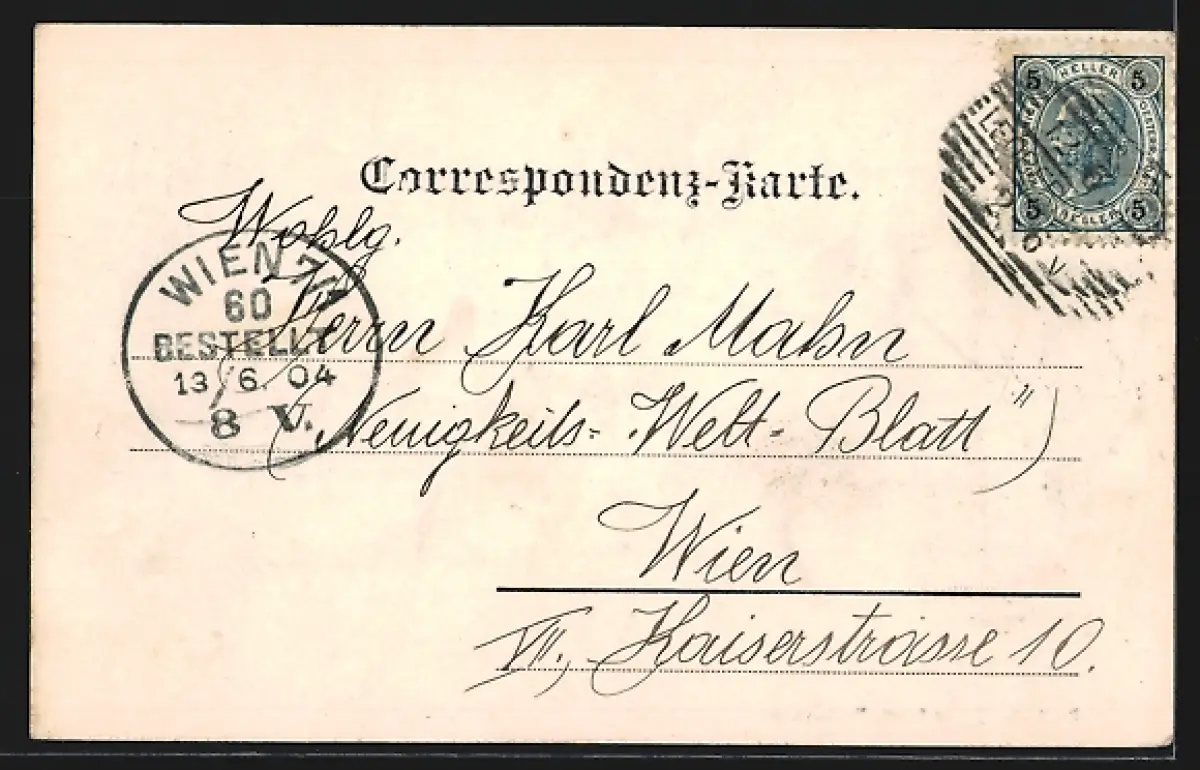 Correspondenz-Karte.
5 HELLER 5
5 HELLER 5
Wohlg.
WIEN 7/1
60
BESTELLT
13 6 04
8 V.
Herrn Karl Mahn
(„Neuigkeits- Welt- Blatt")
Wien
VII., Kaiserstrasse 10.